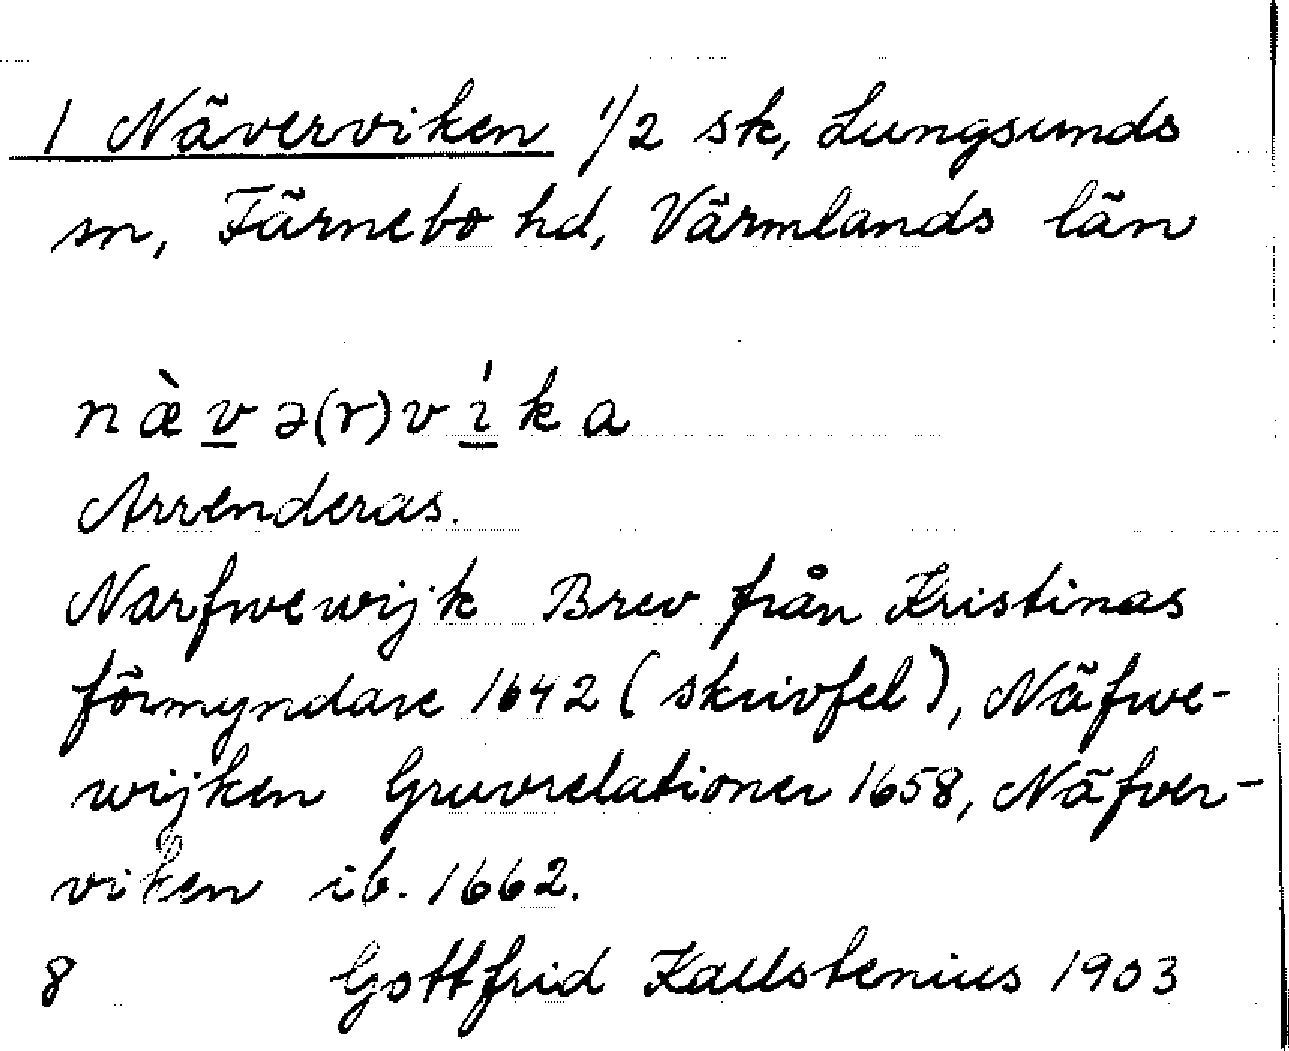 1 Näverviken 1/2 sk, Lungsunds
sn, Färnebo hd, Värmlands län
næ̀v̲ə(r)vı̲́ka
Arrenderas.
Narfwewijk Brev från Kristinas
förmyndare 1642 (skrivfel), Näfwe-
wijken Gruvrelationer 1658, Näfver-
viken ib. 1662.
8 Gottfrid Kallstenius 1903